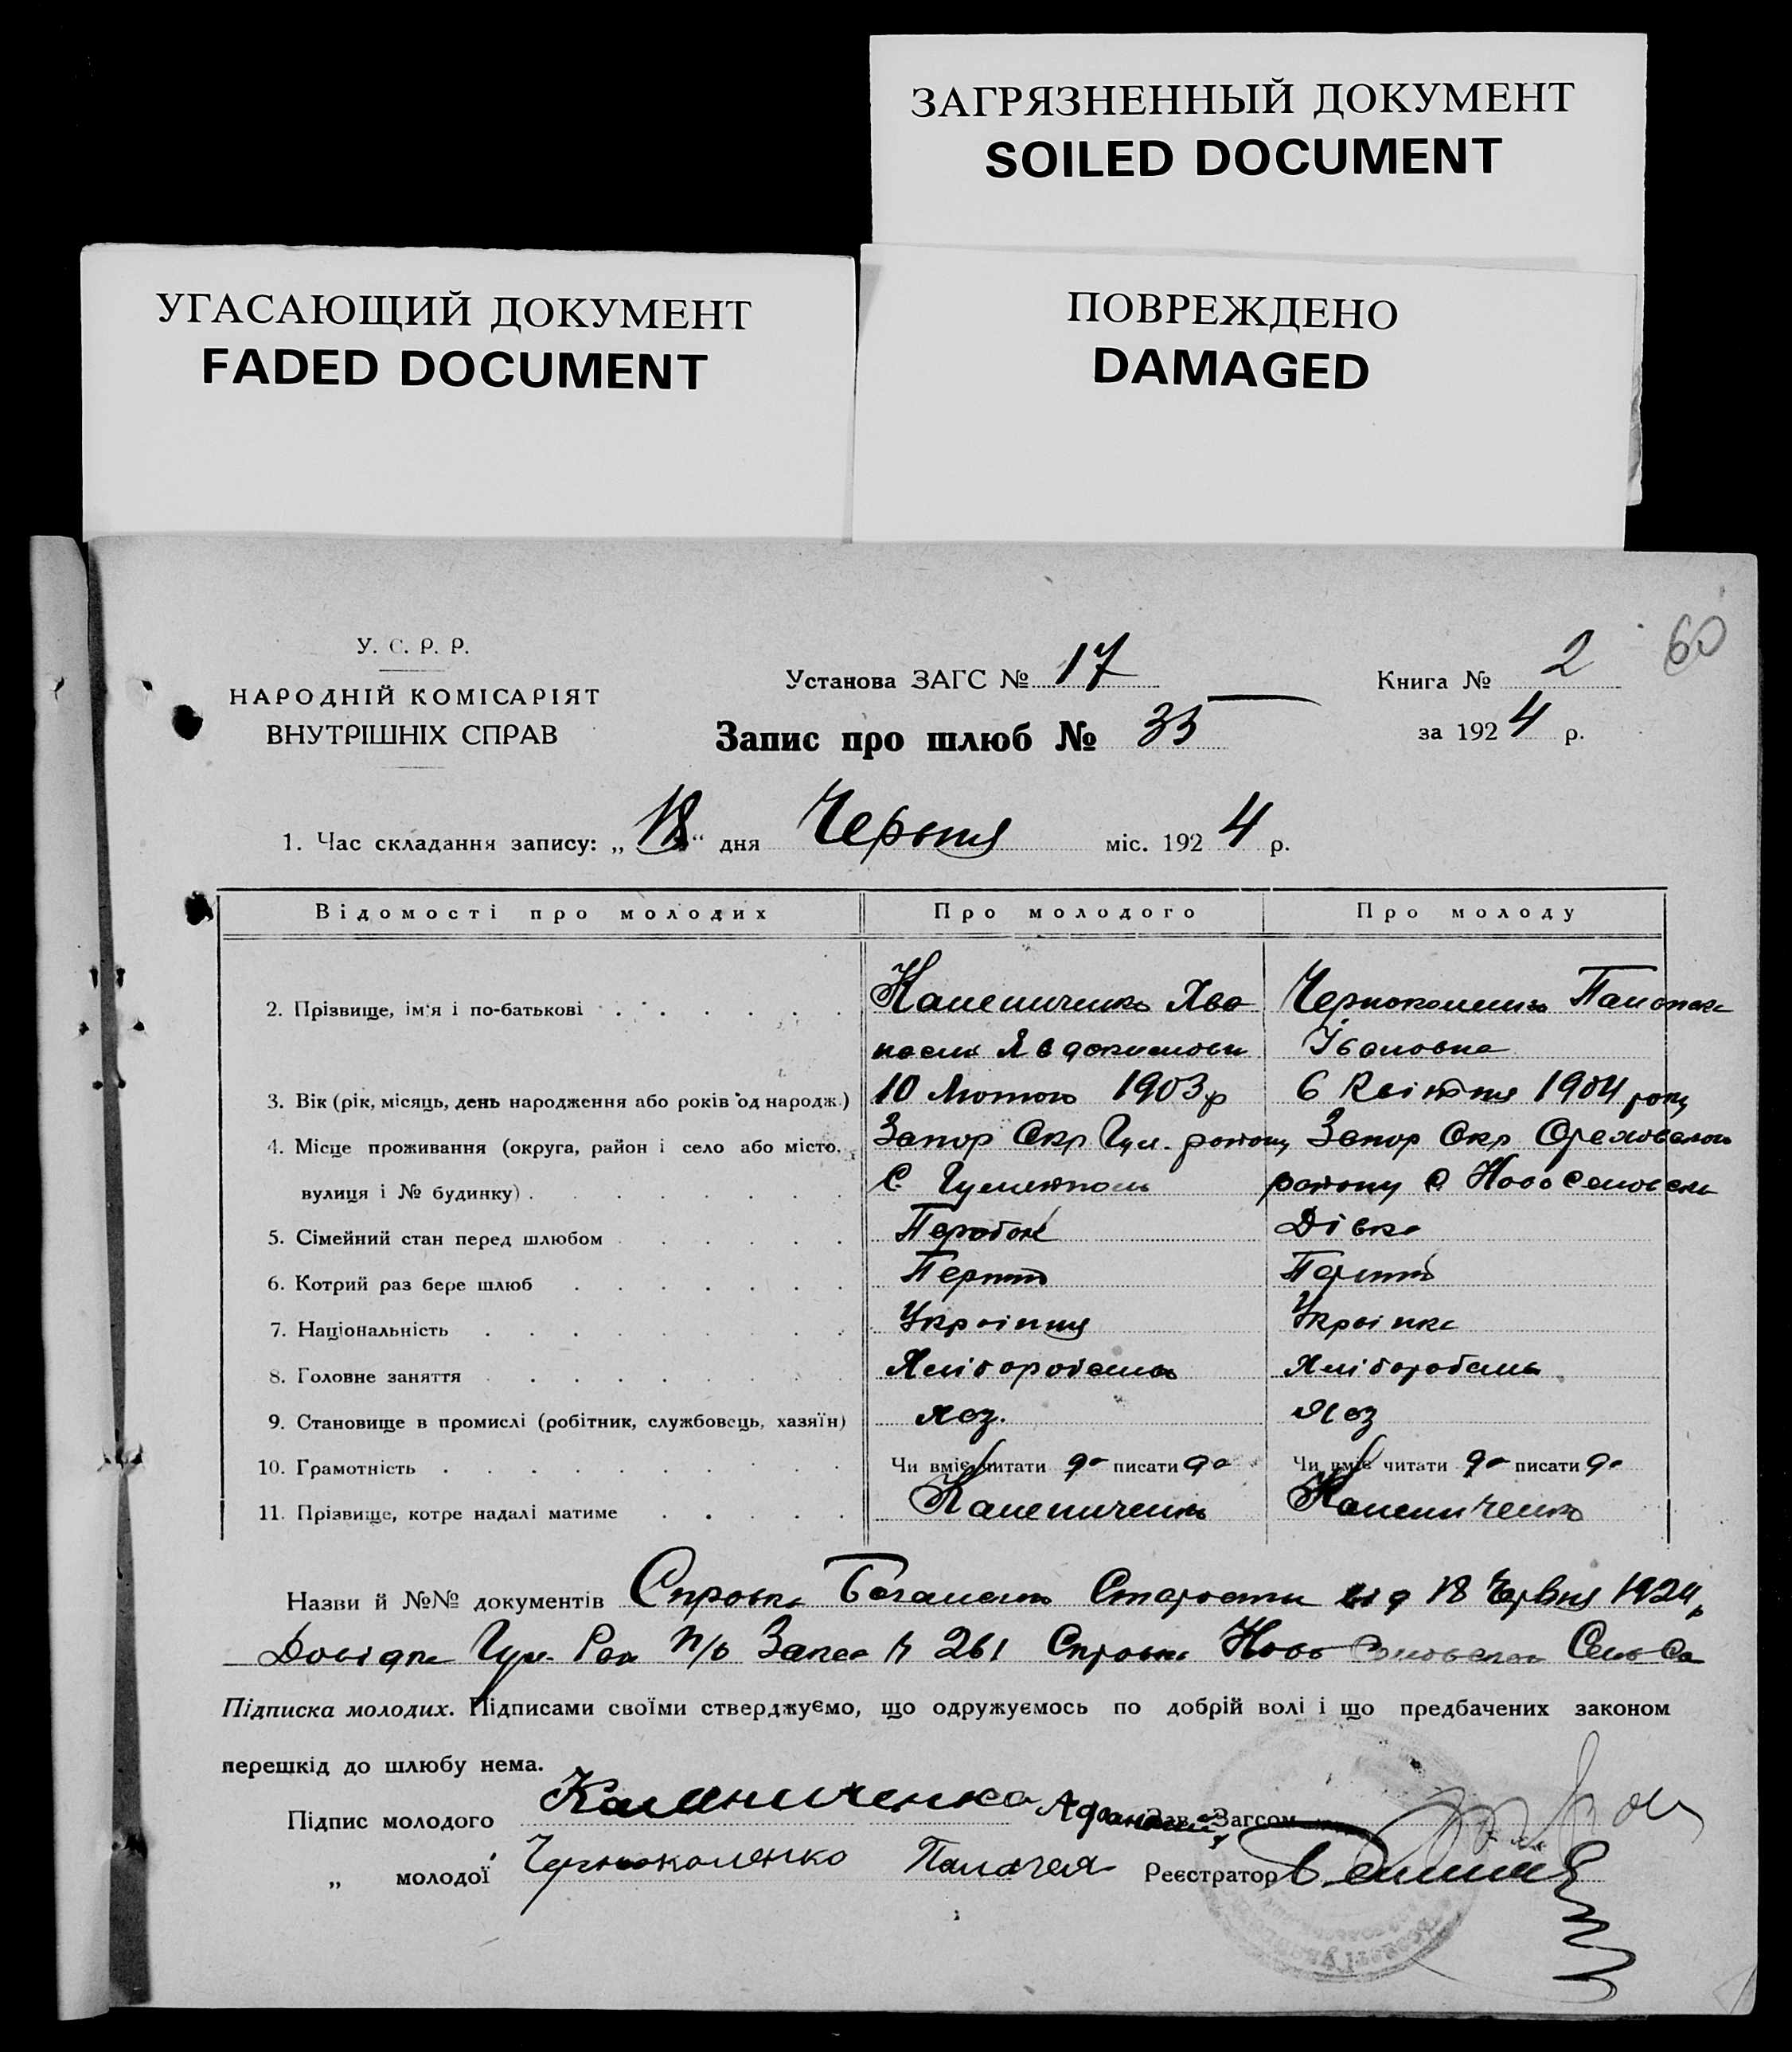 ЗАГРЯЗНЕННЫЙ ДОКУМЕНТ
SOILED DOCUMENT
УГАСАЮЩИЙ ДОКУМЕНТ
FADED DOCUMENT
ПОВРЕЖДЕНО
DAMAGED
60
У. С. Р. Р.
НАРОДНІЙ КОМІСАРІЯТ
ВНУТРІШНІХ СПРАВ
Установа ЗАГС № 17
Книга № 2
Запис про шлюб № 35
за 1924 р.
1. Час складання запису: „18“ дня Червня міс. 1924 р.
Відомості про молодих Про молодого Про молоду
2. Прізвище, ім'я і по-батькові
Ивановна
3. Вік (рік, місяць, день народження або років од народж.) 10 Лютого 1903 р 6 Квітня 1904 року
4. Місце проживання (округа, район і село або місто, Запор Окр Гул. району Запор Окр Ореховского
вулиця і № будинку) С. Гуляйполь району С
5. Сімейний стан перед шлюбом Паробок Дівка
6. Котрий раз бере шлюб Перший Перший
7. Національність Українця Українка
8. Головне заняття Хлібороб Хлібороб
9. Становище в промислі (робітник, службовець, хазяїн) хоз. хоз
10. Грамотність Чи вміє читати да писати да Чи вміє читати да писати да
11. Прізвище, котре надалі матиме Калениченко Калениченко
Назви й №№ документів Справка Старости від 18 Червня 1924 р
Гул. Рай 261 Справка Ново
Підписка молодих. Підписами своїми стверджуємо, що одружуємось по добрій волі і що предбачених законом
перешкід до шлюбу нема.
Підпис молодого Калениченко Афанасий Зав. Загсом
„ молодої Черноколенко Палагея Реєстратор